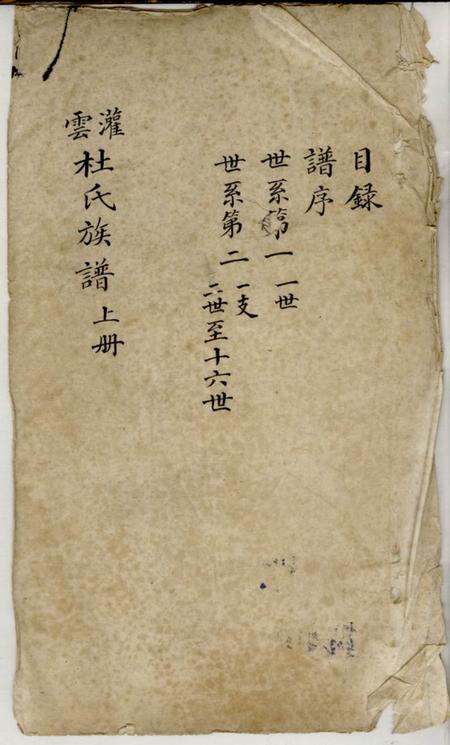 目録
譜序
世系第一 一世
世系第二 一支
二世至十六世
灌雲杜氏族譜 上册